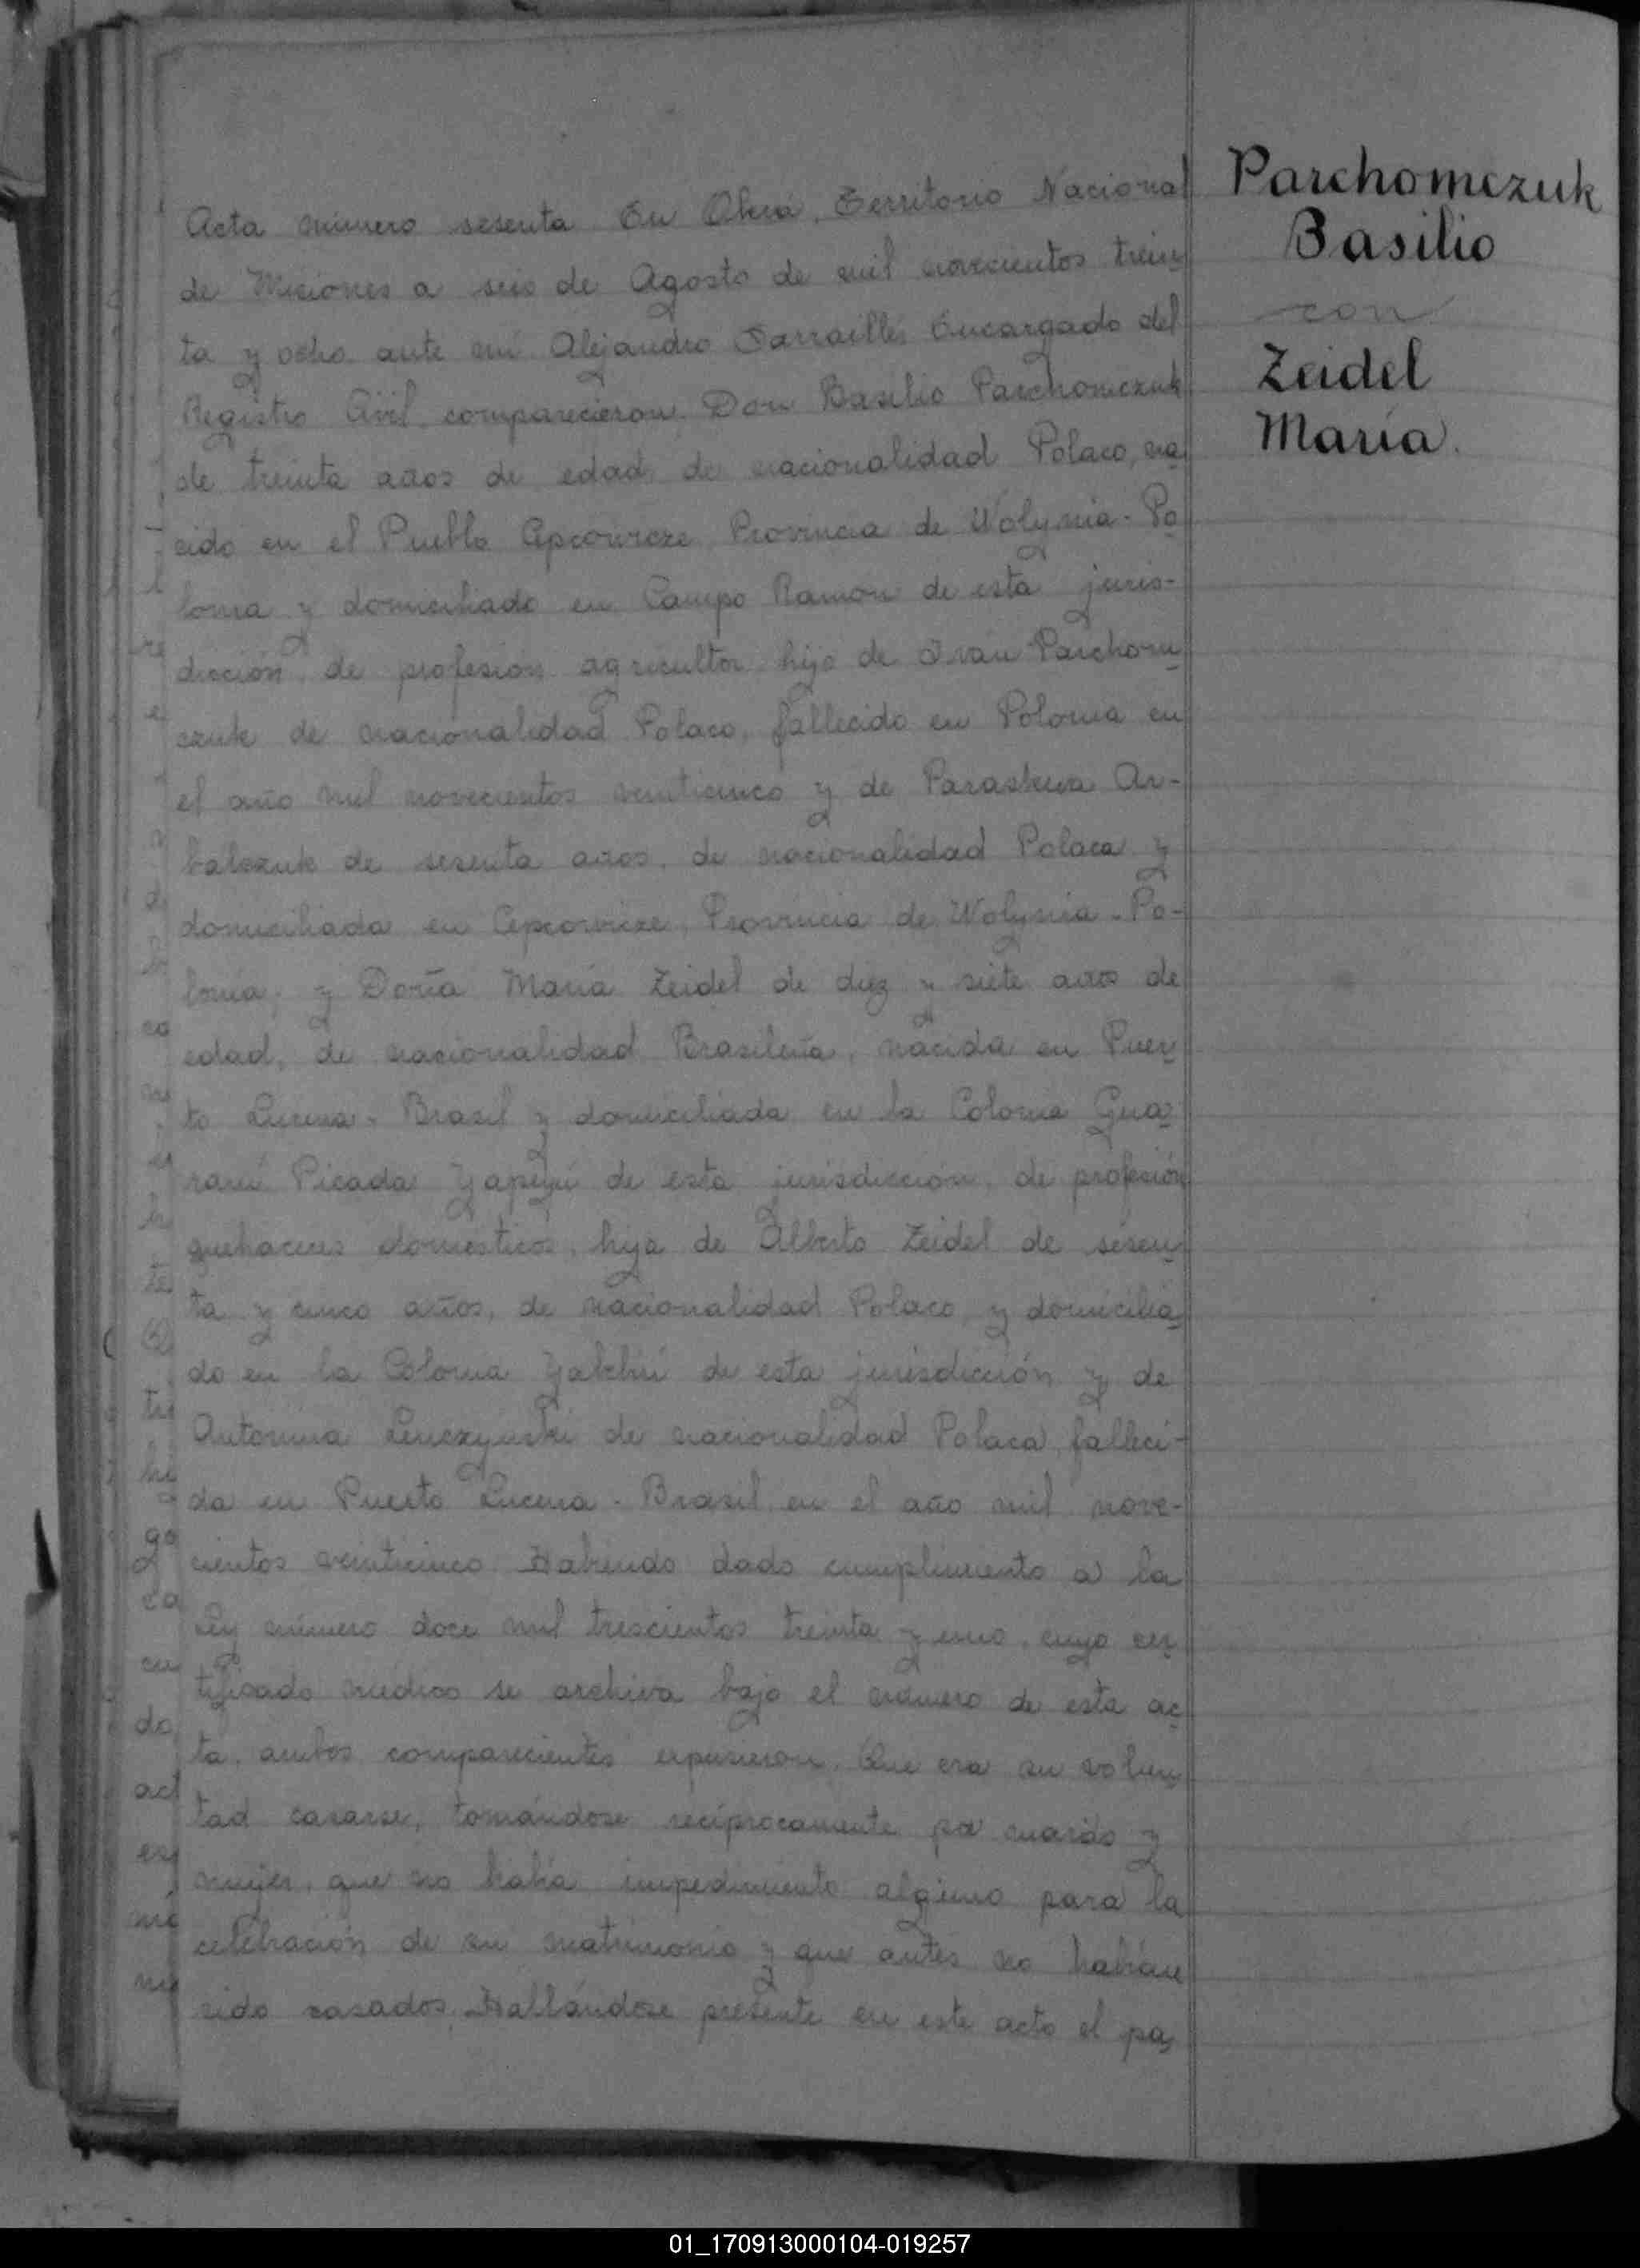 Parchomczuk
Basilio
con
Zeidel
María.
Acta número sesenta En Oberá, Territorio Nacional
de Misiones a seis de Agosto de mil novecientos trein
ta y ocho ante mi Alejandro Encargado del
Registro Civil comparecieron Don Basilio Parchomczuk
de treinta años de edad de nacionalidad Polaco, na
cido en el Pueblo Provincia de Wolynia - Po
lonia y domiciliado en Campo Ramon de esta juris-
dicción de profesion agricultor hijo de Ivan Parchom
czuk de nacionalidad Polaco, fallecido en Polonia en
el año mil novecientos veinticinco y de Paraskewa Ar-
balczuk de sesenta años, de nacionalidad Polaca y
domiciliada en Provincia de Wolynia - Po-
lonia, y Doña María Zeidel de diez y siete años de
edad, de nacionalidad Brasileña, nacida en Puer
to Lucena - Brasil y domiciliada en la Colonia Gua
raní Picada Yapeyú de esta jurisdicción, de profesión
quehaceres domésticos, hija de Alberto Zeidel de sesen
ta y cinco años, de nacionalidad Polaco, y domicilia
do en la Colonia de esta jurisdicción y de
Antonina de nacionalidad Polaca, falleci-
da en Puerto Lucena - Brasil en el año mil nove-
cientos veinticinco Habiendo dado cumplimiento a la
Ley número doce mil trescientos treinta y uno, cuyo cer
tificado médico se archiva bajo el número de esta ac
ta, ambos comparecientes expusieron. Que era su volun
tad casarse, tomándose recíprocamente por marido y
mujer, que no había impedimento alguno para la
celebración de su matrimonio y que antes no habían
sido casados. Hallándose presente en este acto el pa
01_170913000104-019257